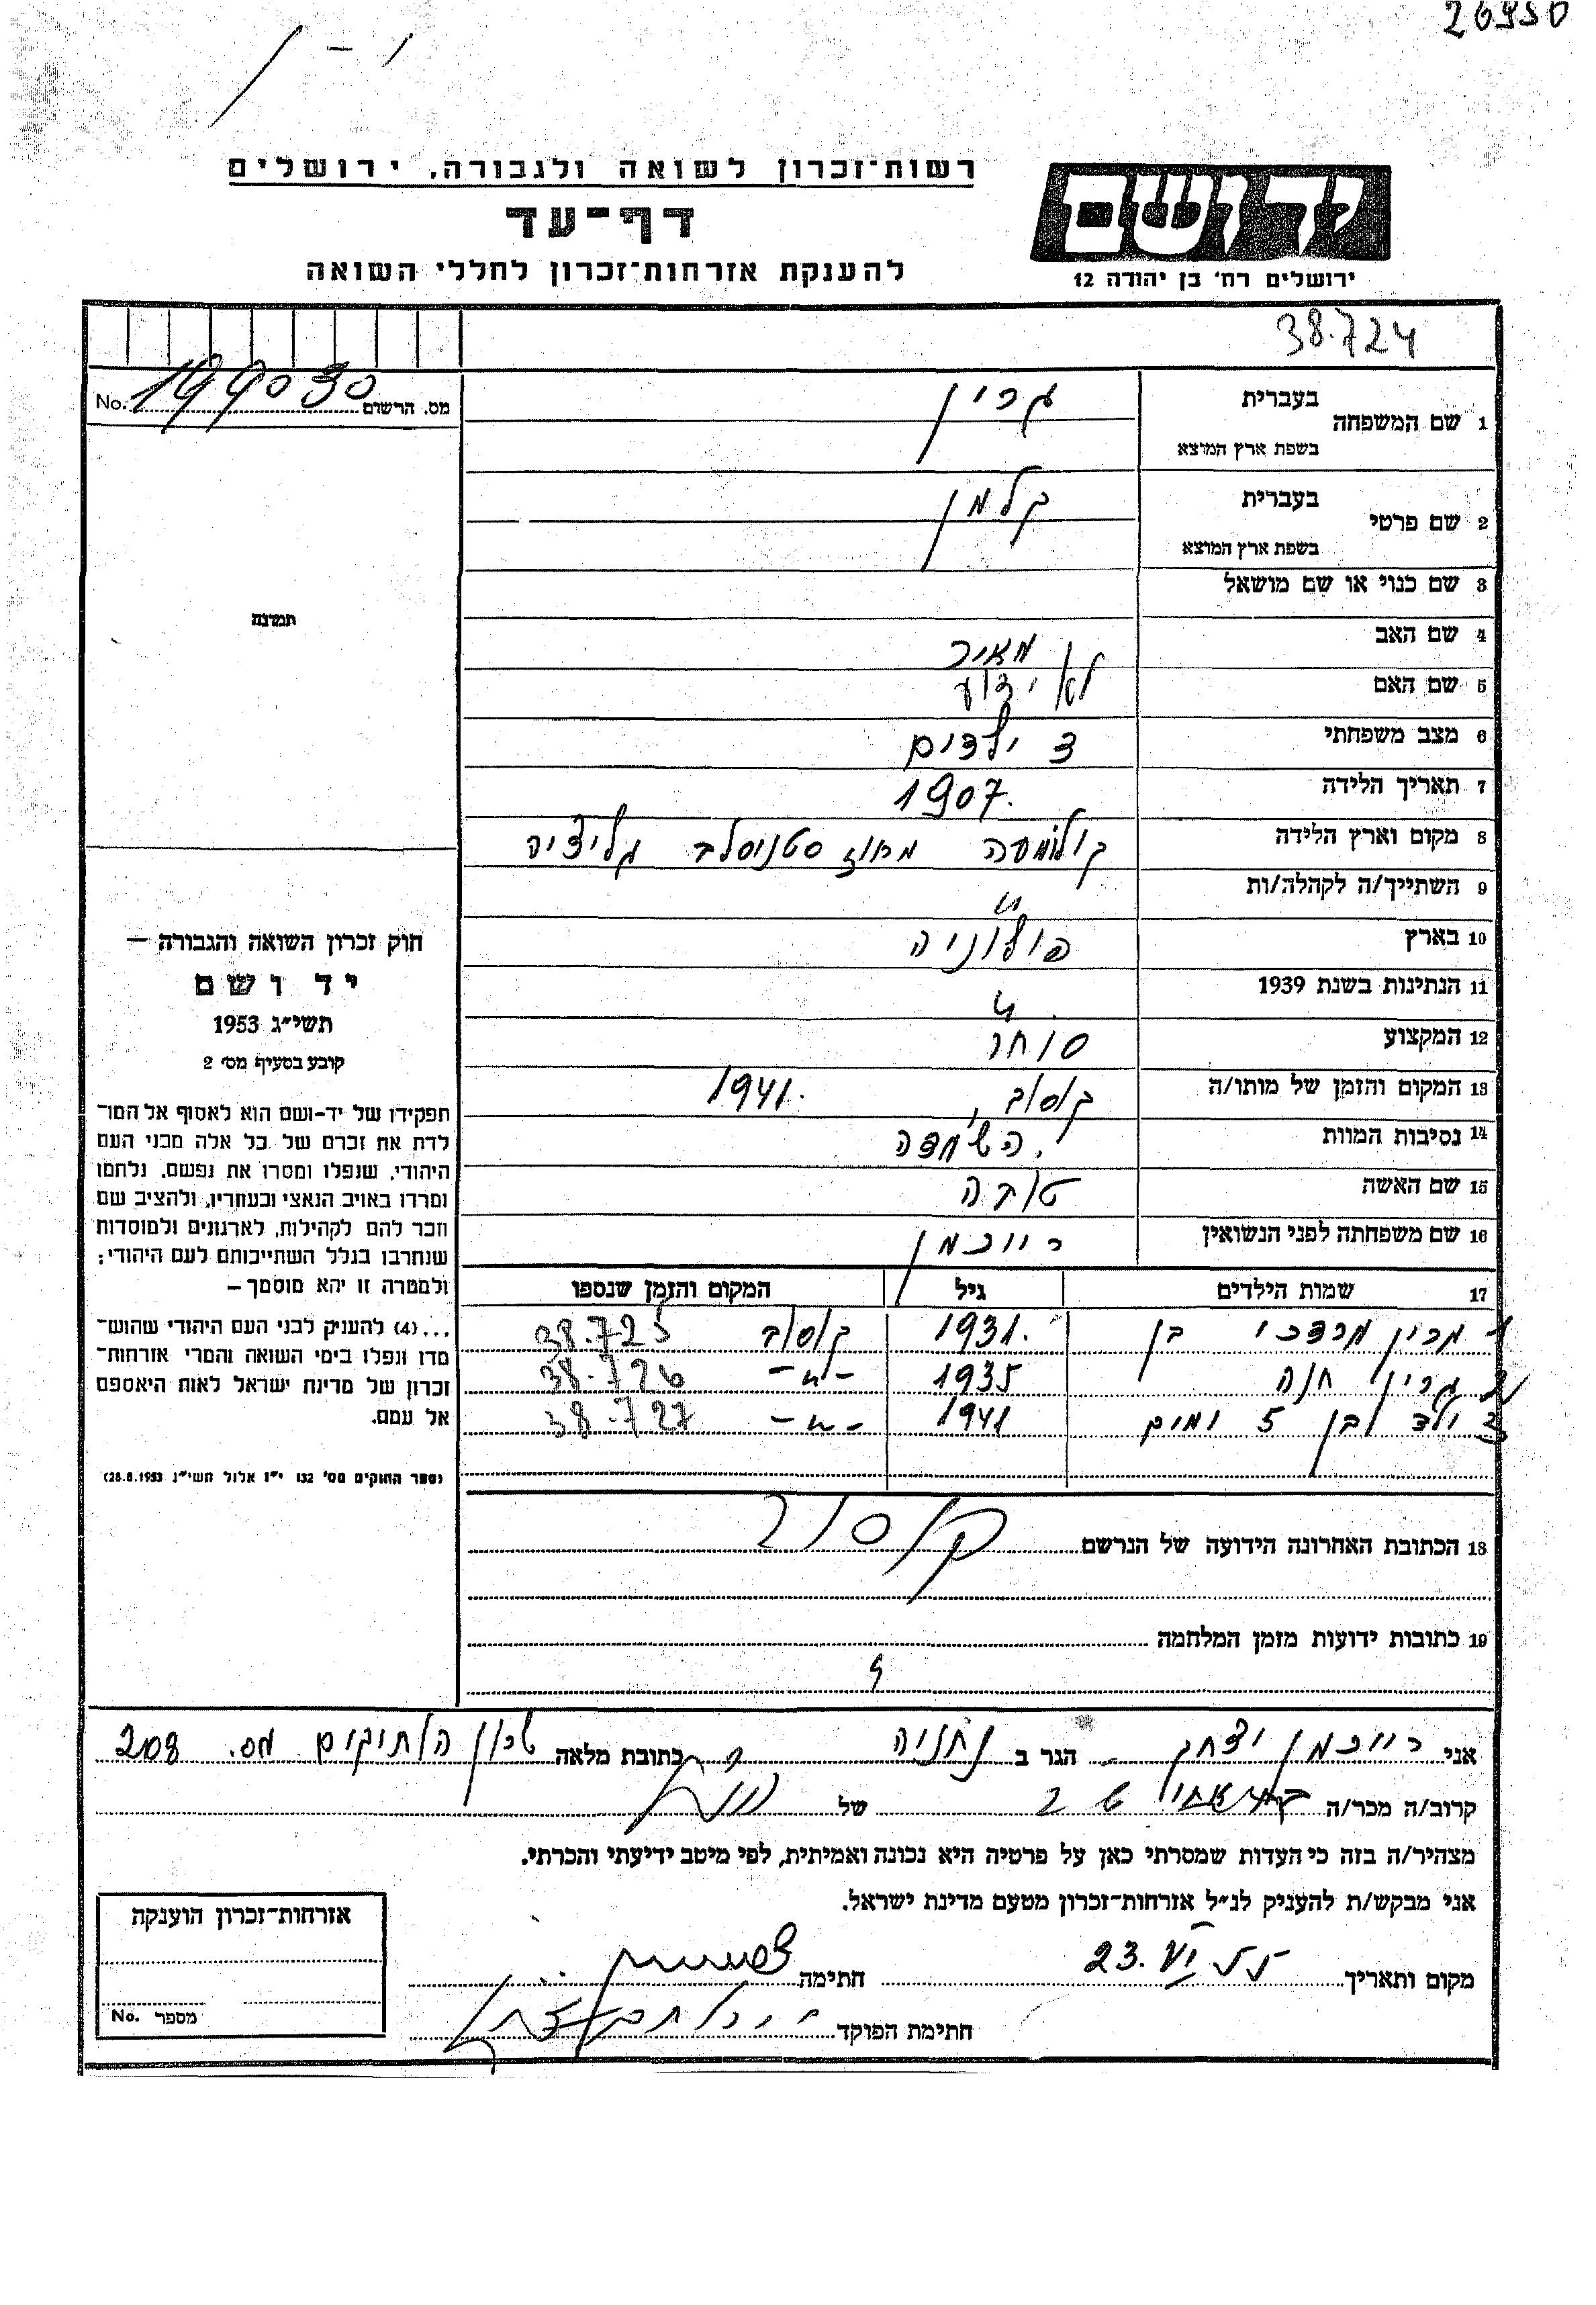 26950
רשות־זכרון לשואה ולגבורה, ירושלים
דף־עד
להענקת אזרחות־זכרון לחללי השואה
יד ושם
ירושלים רח' בן יהודה 12
38.724
מס. הרשום 199030 No.
1 שם המשפחה בעברית גרין
בשפת ארץ המוצא
2 שם פרטי בעברית קלמן
בשפת ארץ המוצא
3 שם כנוי או שם מושאל
4 שם האב מאיר
5 שם האם לא ידוע
6 מצב משפחתי 3 ילדים
7 תאריך הלידה 1907.
8 מקום וארץ הלידה קולומיה מחוז סטניסלב גליציה
9 השתייך/ה לקהלה/ות "
10 בארץ פולוניה
11 הנתינות בשנת 1939 "
12 המקצוע סוחר
13 המקום והזמן של מותו/ה קוסוב, 1941.
14 נסיבות המוות השמדה
15 שם האשה טובה
16 שם משפחתה לפני הנשואין רייכמן
17 שמות הילדים גיל המקום והזמן שנספו
1 גרין מרדכי בן 1931. קוסוב 38.725
2 גרין חנה 1935 -"- 38.726
3 ילד בן 5 ימים 1941 -"- 38.727
18 הכתובת האחרונה הידועה של הנרשם קוסוב
19 כתובות ידועות מזמן המלחמה
תמונה
חוק זכרון השואה והגבורה —
יד ושם
תשי"ג 1953
קובע בסעיף מס' 2
תפקידו של יד-ושם הוא לאסוף אל המו־
לדת את זכרם של כל אלה מבני העם
היהודי, שנפלו ומסרו את נפשם, נלחמו
ומרדו באויב הנאצי ובעוזריו, ולהציב שם
וזכר להם לקהילות, לארגונים ולמוסדות
שנחרבו בגלל השתייכותם לעם היהודי;
ולמטרה זו יהא מוסמך —
...(4) להענק לבני העם היהודי שהוש־
מדו ונפלו בימי השואה והמרי אזרחות־
זכרון של מדינת ישראל לאות היאספם
אל עמם.
(ספר החוקים מס' 132 י"ז אלול תשי"ג 28.8.1953)
אני רייכמן יצחק הגר ב נתניה כתובת מלאה שכון הותיקים מס. 208
קרוב/ה מכר/ה של
מצהיר/ה בזה כי העדות שמסרתי כאן על פרטיה היא נכונה ואמיתית, לפי מיטב ידיעתי והכרתי.
אני מבקש/ת להעניק לנ"ל אזרחות־זכרון מטעם מדינת ישראל.
מקום ותאריך 23. VI 55 חתימה
חתימת הפוקד
אזרחות־זכרון הוענקה
מספר No.